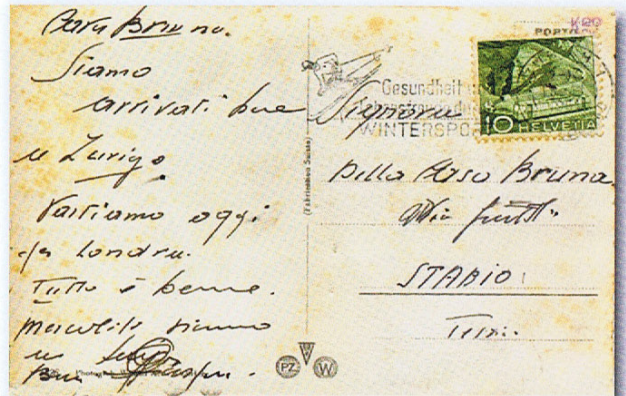 Cara Bruna.
Siamo
arrivati bene
a Zurigo
Partiamo oggi
per Londra.
Tutto è bene.
siamo
(Fabrication Suisse)
PORTO
Gesundheit
WINTERSPO
10 HELVETIA
Signora
Della Casa Bruna
Via
STABIO
Ticino.
PZ W